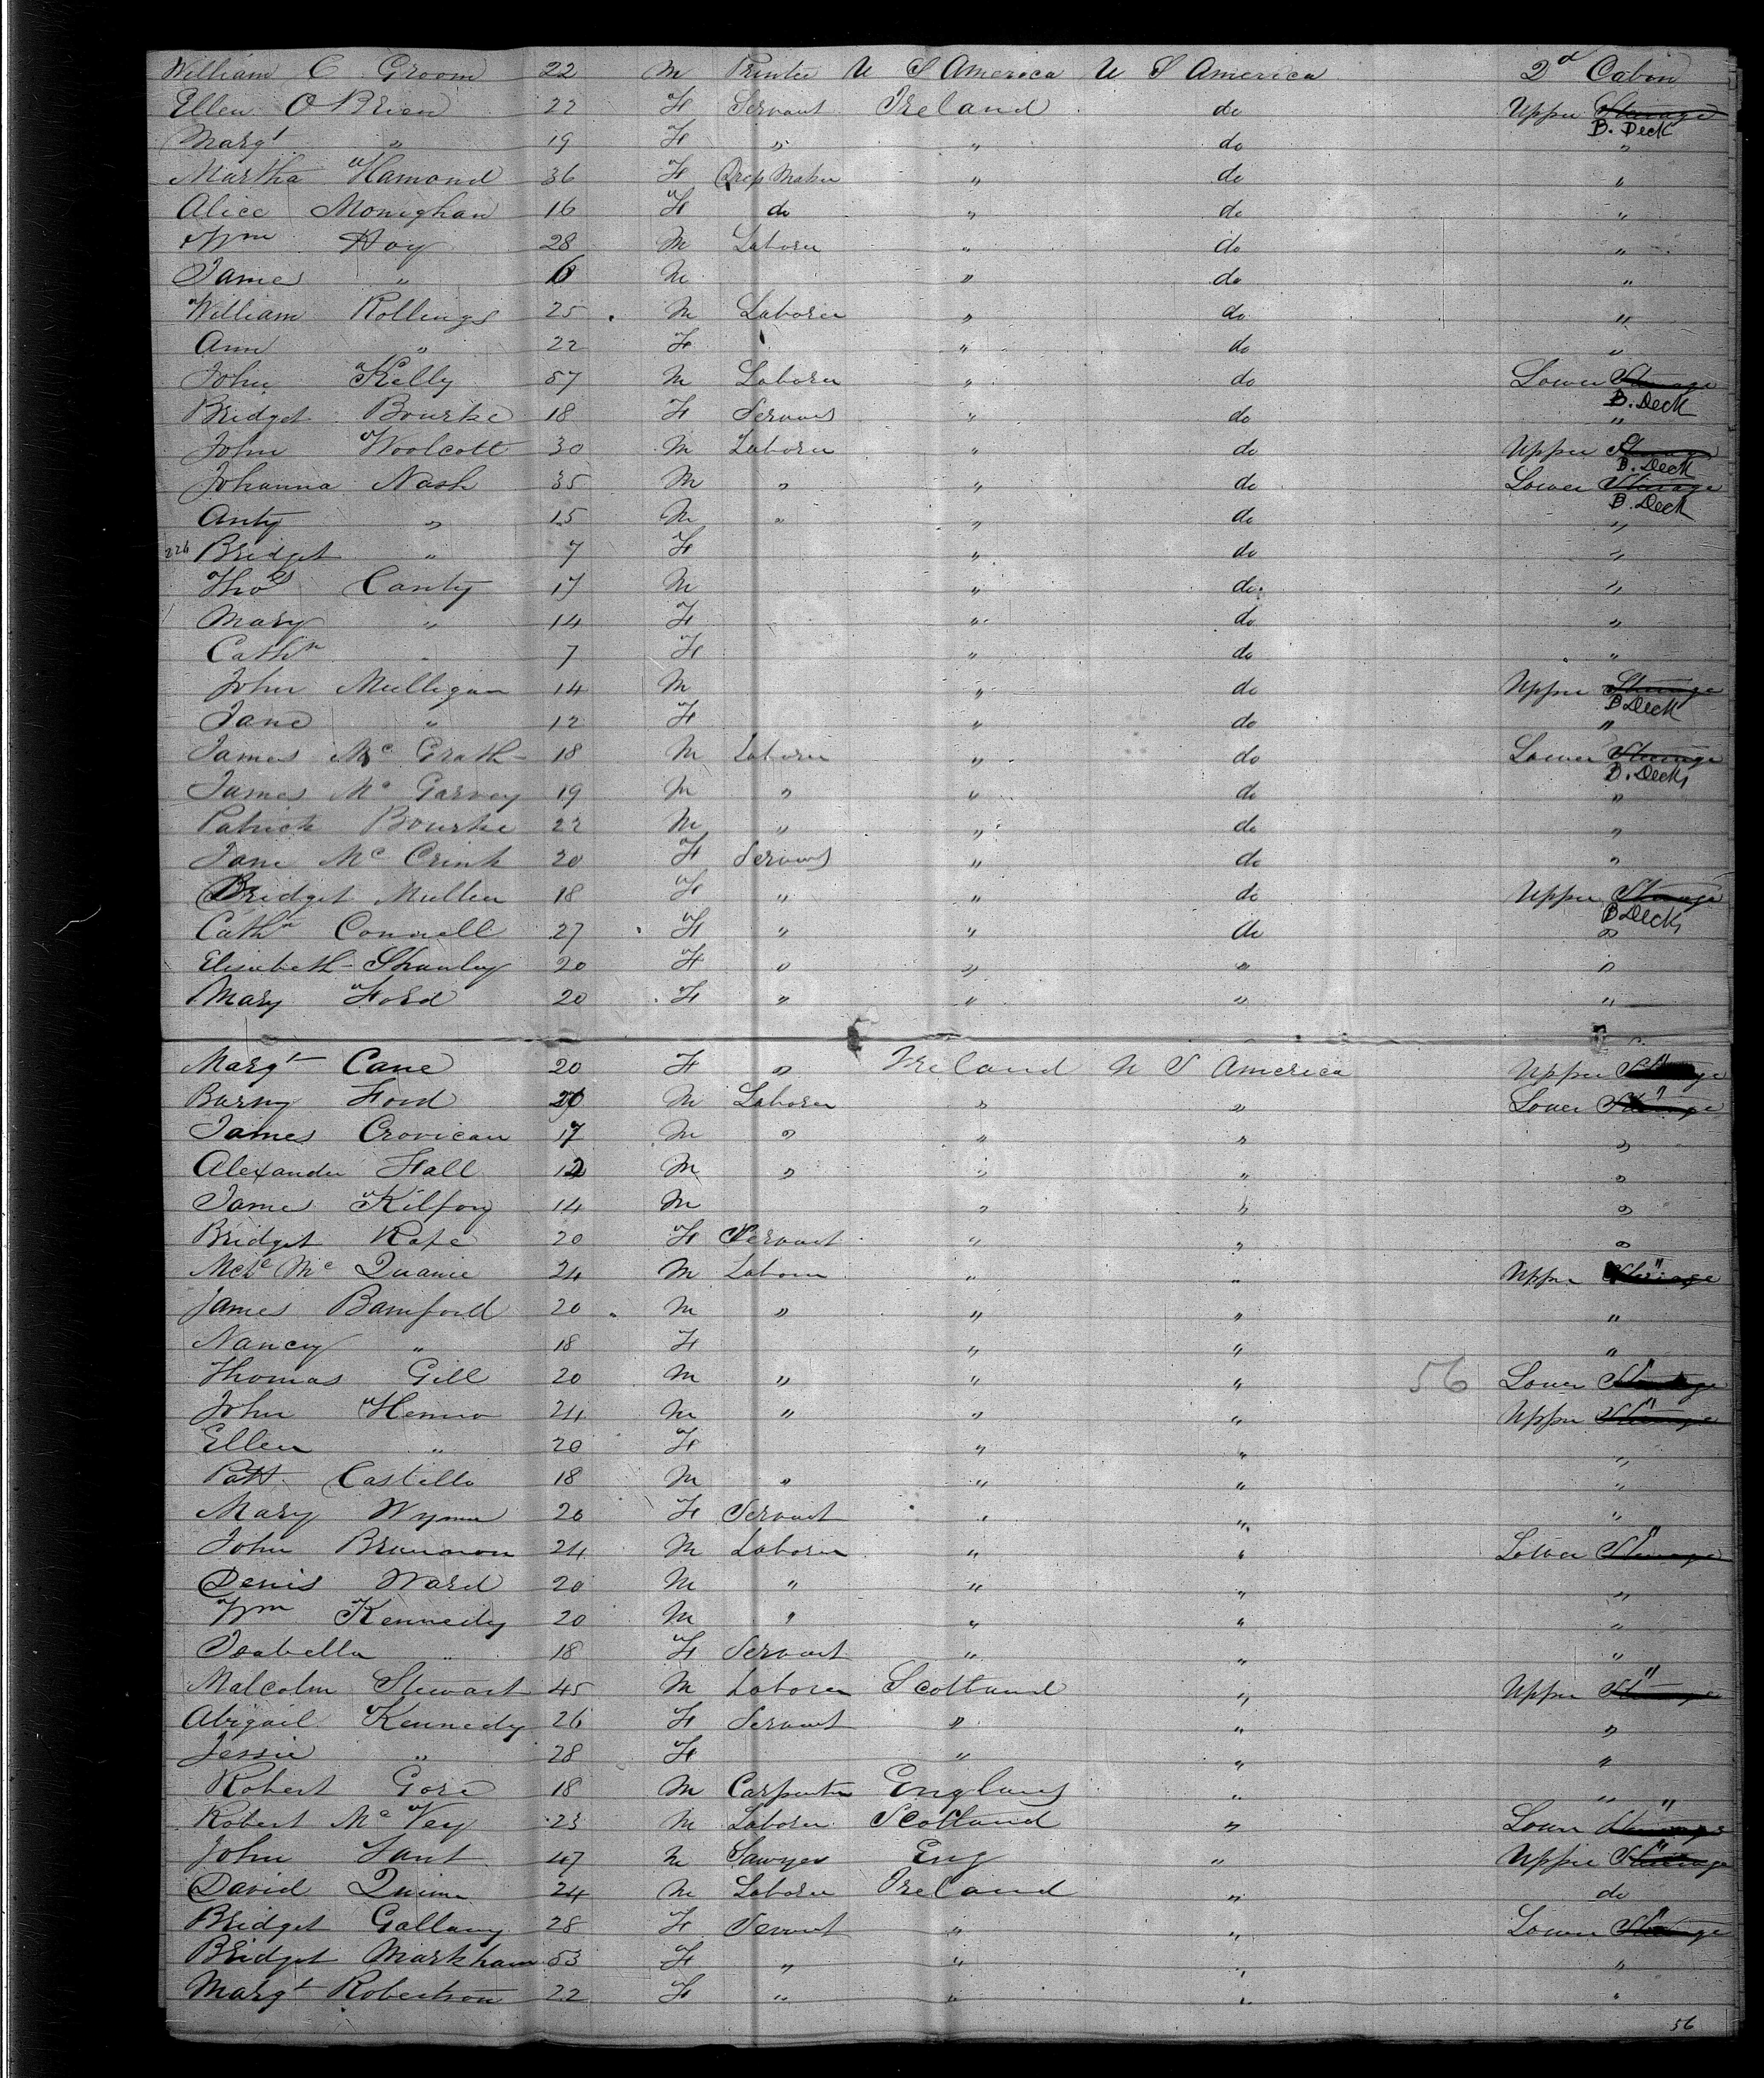 William C Groom 22 M Printer U S America U S America 2d Cabin
Ellen O Brien 22 F Servant Ireland do Upper Steerage
B. Deck
Margt " 19 F " " do "
Martha Hamond 36 F Dress Maker " do "
Alice Moneghan 16 F do " do "
Wm Hoy 28 M Laborer " do "
James " M " do "
William Rollings 25 M Laborer " do "
Ann " 22 F " do "
John Kelly 57 M Laborer " do Lower Steerage
B. Deck
Bridget Bourke 18 F Servant " do "
John Woolcott 30 M Laborer " do Upper Steerage
B. Deck
Johanna Nash 35 M " " do Lower Steerage
B. Deck
Anty " 15 M " " do "
226 Bridget " 7 F " do "
Thos Canty 17 M " do "
Mary " 14 F " do "
Cathn " 7 F " do "
John Mulligan 14 M " do Upper Steerage
B Deck
Jane " 12 F " do "
James Mc Grath 18 M Laborer " do Lower Steerage
B. Deck
James Mc Garvey 19 M " " do "
Patrick Bourke 22 M " " do "
Jane Mc Crink 20 F Servant " do "
Bridget Mullen 18 F " " do Upper Steerage
B Deck
Cathn Connell 27 F " " do "
Elisabeth Shanley 20 F " " " "
Mary Ford 20 F " " " "
Margt Cane 20 F " Ireland U S America Upper Steerage "
Barny Ford M Laborer " " Lower Steerage "
James Crovican 17 M " " " "
Alexander Hall 12 M " " " "
James Kilfoy 14 M " " "
Bridget Kape 20 F Servant " " "
Mcl Mc Quanie 24 M Laborer " " Upper Steerage "
James Bamford 20 M " " " "
Nancy " 18 F " " "
Thomas Gill 20 M " " " 56 Lower Steerage "
John Henno 24 M " " " Upper Steerage "
Ellen " 20 F " " "
Patt Castello 18 M " " " "
Mary Wynn 20 F Servant " " "
John Brennon 24 M Laborer " " Lower Steerage "
Denis Ward 20 M " " " "
Wm Kennedy 20 M " " " "
Isabella " 18 F Servant " " "
Malcolm Stewart 45 M Laborer Scotland " Upper Steerage "
Abigail Kennedy 26 F Servant " " "
Jessie " 28 F " " "
Robert Gore 18 M Carpenter England " " "
Robert Mc Vey 23 M Laborer Scotland " Lower Steerage
John Sant 47 M Sawyer Eng " Upper Steerage "
David Quinn 24 M Laborer Ireland " do
Bridget Gallany 28 F Servant " " Lower Steerage "
Bridget Markham 53 F " " " "
Margt Robertson 22 F " " " "
56